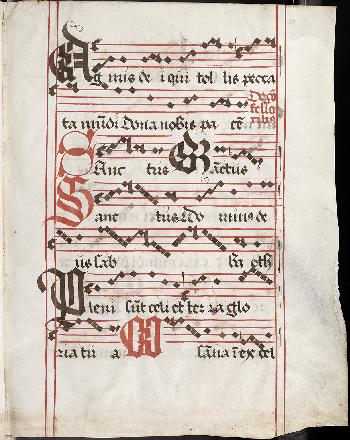 Ag nus de i qui tol lis pecca
ta mūdi Dona nobis pa cē
Sanc tus Sāctus
Sanc tus Do minus de
us sab ba oth
Pleni sūt celi et ter ra glo
ria tu a O sāna ī ex cel